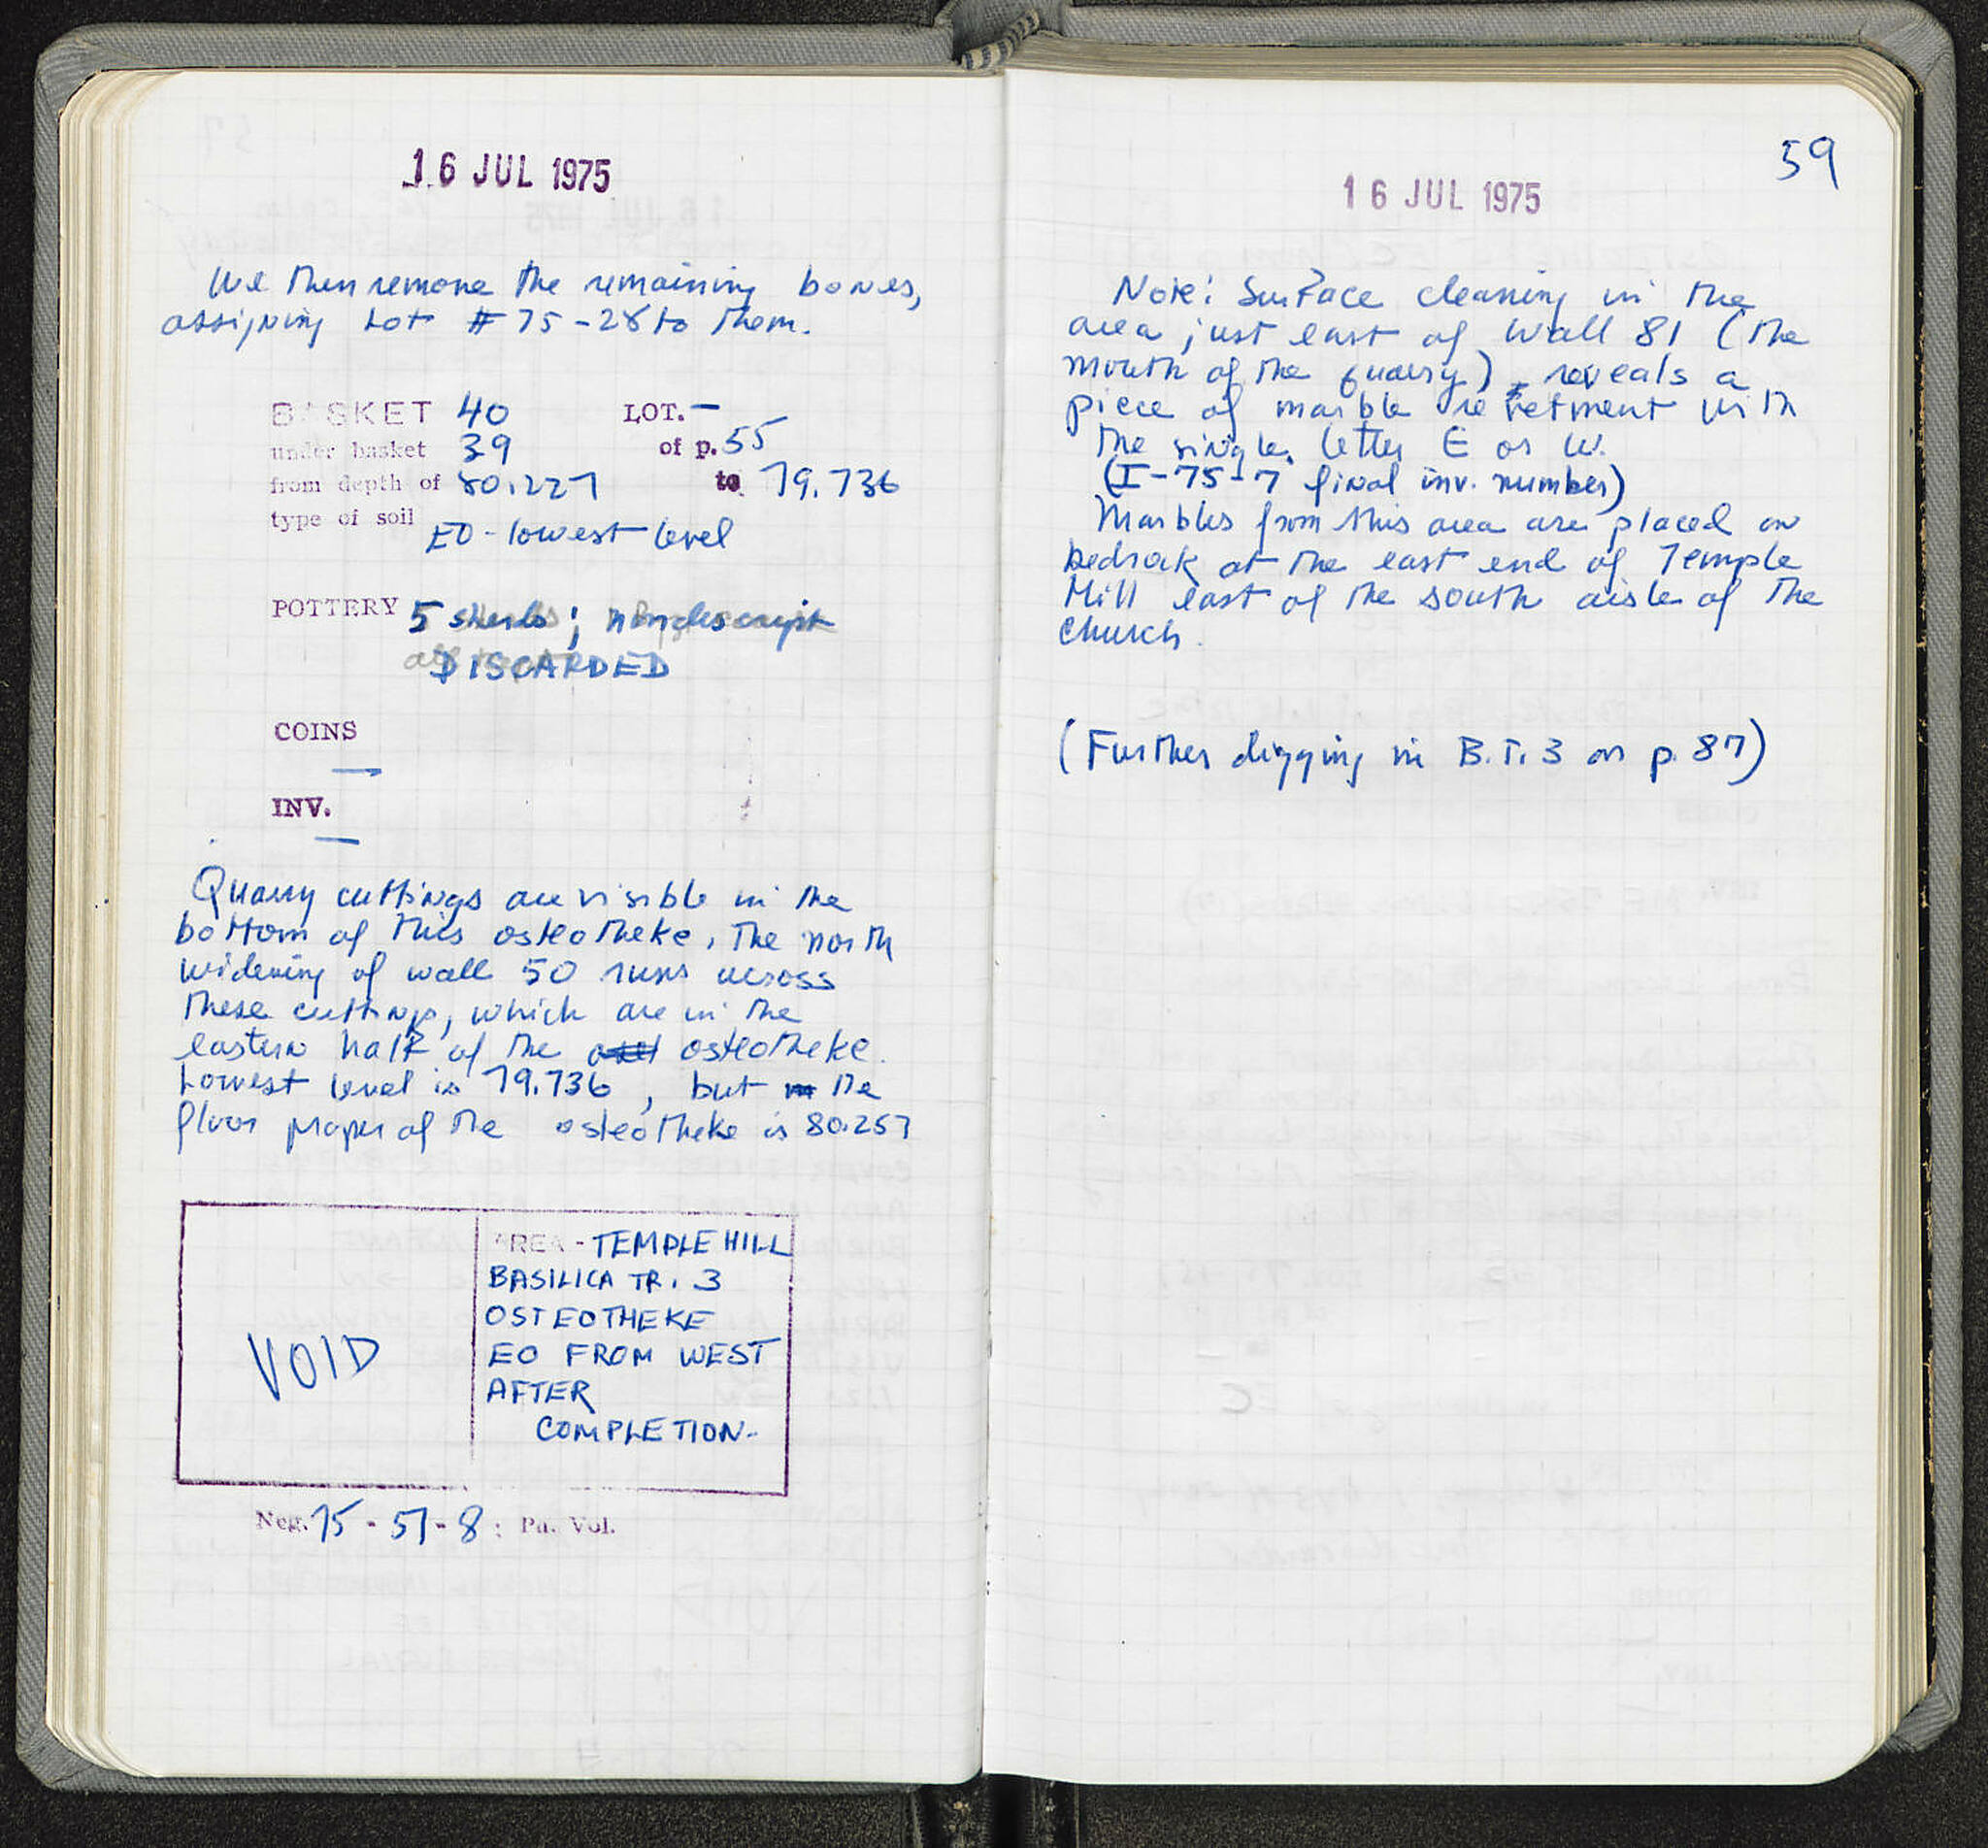 16 JUL 1975
We then remove the remaining bones,
assigning Lot # 75-28 to them.
BASKET 40 LOT. —
under basket 39 of p. 55
from depth of 80.227 to 79.736
type of soil EO - lowest level
POTTERY 5 sherds; nondescript
DISCARDED
COINS
—
INV.
—
Quarry cuttings are visible in the
bottom of this osteotheke. The north
widening of wall 50 runs across
these cuttings, which are in the
eastern half of the osteotheke.
Lowest level is 79.736, but the
floor proper of the osteotheke is 80.257
VOID
AREA - TEMPLE HILL
BASILICA TR. 3
OSTEOTHEKE
EO FROM WEST
AFTER
COMPLETION-
Neg. 75 - 57 - 8 ; Pa. Vol.
59
16 JUL 1975
Note: Surface cleaning in the
area just east of Wall 81 (the
mouth of the quarry), reveals a
piece of marble revetment with
the single letter E or W.
(I-75-7 final inv. number)
Marbles from this area are placed on
bedrock at the east end of Temple
Hill east of the south aisle of the
church.
(Further digging in B.T. 3 on p. 87)